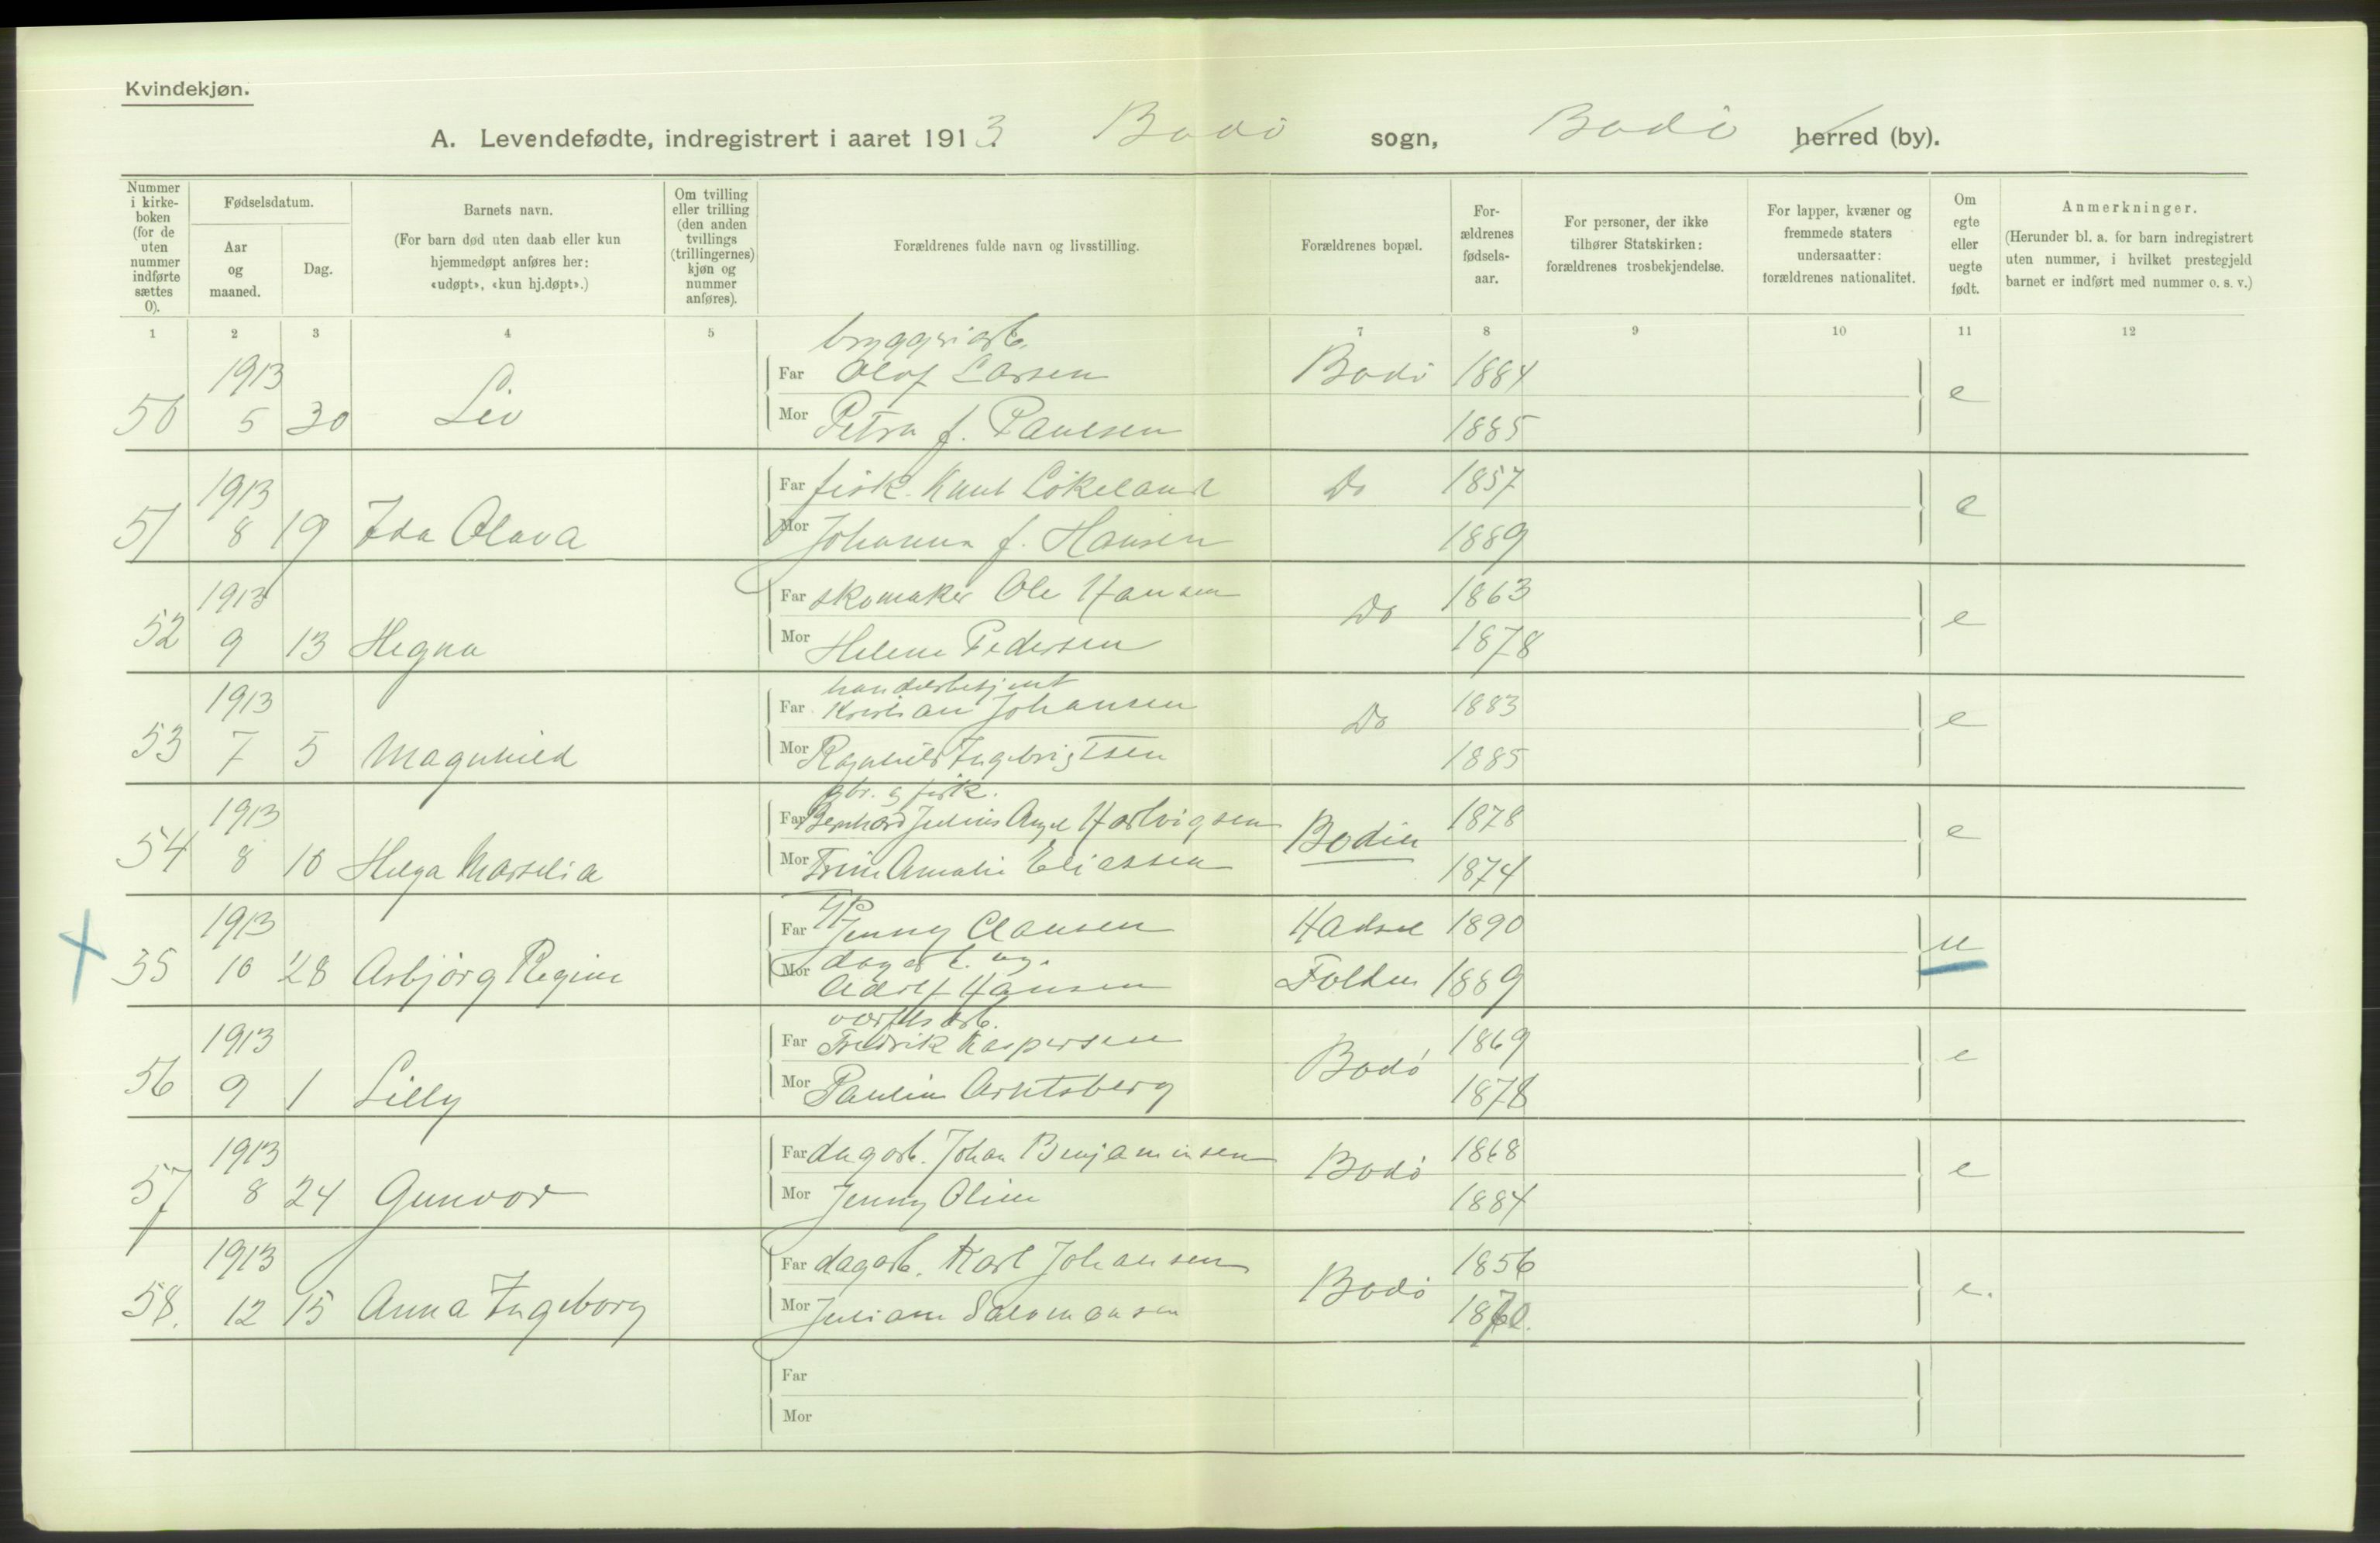 Kvindekjøn.
A. Levendefødte, indregistrert i aaret 1913. Bodø sogn, Bodø herred (by).
Nummer i kirke-boken (for de uten nummer indførte sættes 0).
Fødselsdatum.
Aar og maaned.
Dag.
Barnets navn.
(For barn død uten daab eller kun hjemmedøpt anføres her: «udøpt», «kun hj.døpt».)
Om tvilling eller trilling (den anden tvillings (trillingernes) kjøn og nummer anføres).
Forældrenes fulde navn og livsstilling.
Forældrenes bopæl.
For-ældrenes fødsels-aar.
For personer, der ikke tilhører Statskirken: forældrenes trosbekjendelse.
For lapper, kvæner og fremmede staters undersaatter: forældrenes nationalitet.
Om egte eller uegte født.
Anmerkninger.
(Herunder bl. a. for barn indregistrert uten nummer, i hvilket prestegjeld barnet er indført med nummer o. s. v.)
1 2 3 4 5 7 8 9 10 11 12
bryggeriarb.
1913 Far Olaf Larsen Bodø 1884
50 5 30 Liv Mor Petra f. Paulsen 1885 e
1913 Far fisk. Knut Lökeland Do 1857
51 8 19 Ida Olava Mor Johanna f. Hansen 1889 e
1913 Far skomaker Ole Hansen Do 1863
52 9 13 Hegna Mor Helene Pedersen 1878 e
handelsbetjent
1913 Far Kristian Johansen Do 1883
53 7 5 Magnhild Mor Ragnhild Ingebrigtsen 1885 e
gbr. og fisk.
1913 Far Bernhard Julius Angel Hartvigsen Bodin 1878
54 8 10 Helga Marselia Mor Trine Amalie Eliassen 1874 e
1913 Far Jenny Clausen Hadsel 1890
55 10 28 Asbjørg Regine Mor dagarb. ug. Adolf Hansen Folden 1889 u
værftsarb.
1913 Far Fredrik Kaspersen Bodø 1869
56 9 1 Lilly Mor Pauline Arntsberg 1878 e
1913 Far dagarb. Johan Benjaminsen Bodø 1868
57 8 24 Gunvor Mor Jenny Oline 1884 e
1913 Far dagarb. Karl Johansen Bodø 1856
58. 12 15 Anna Ingeborg Mor Juliane Salomonsen e.
Far
Mor